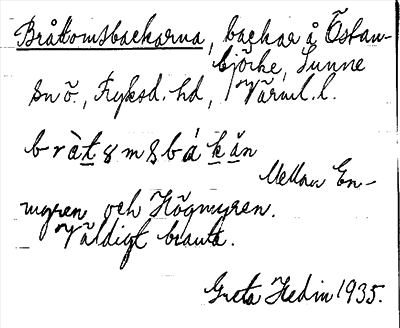 Bråtomsbackarna, backar å Östan-
björke, Sunne
sn ö., Fryksd. hd, Värml. l.
bràtɤmsbákăn
Mellan En-
myren och Högmyren.
Väldigt branta.
Greta Hedin 1935.